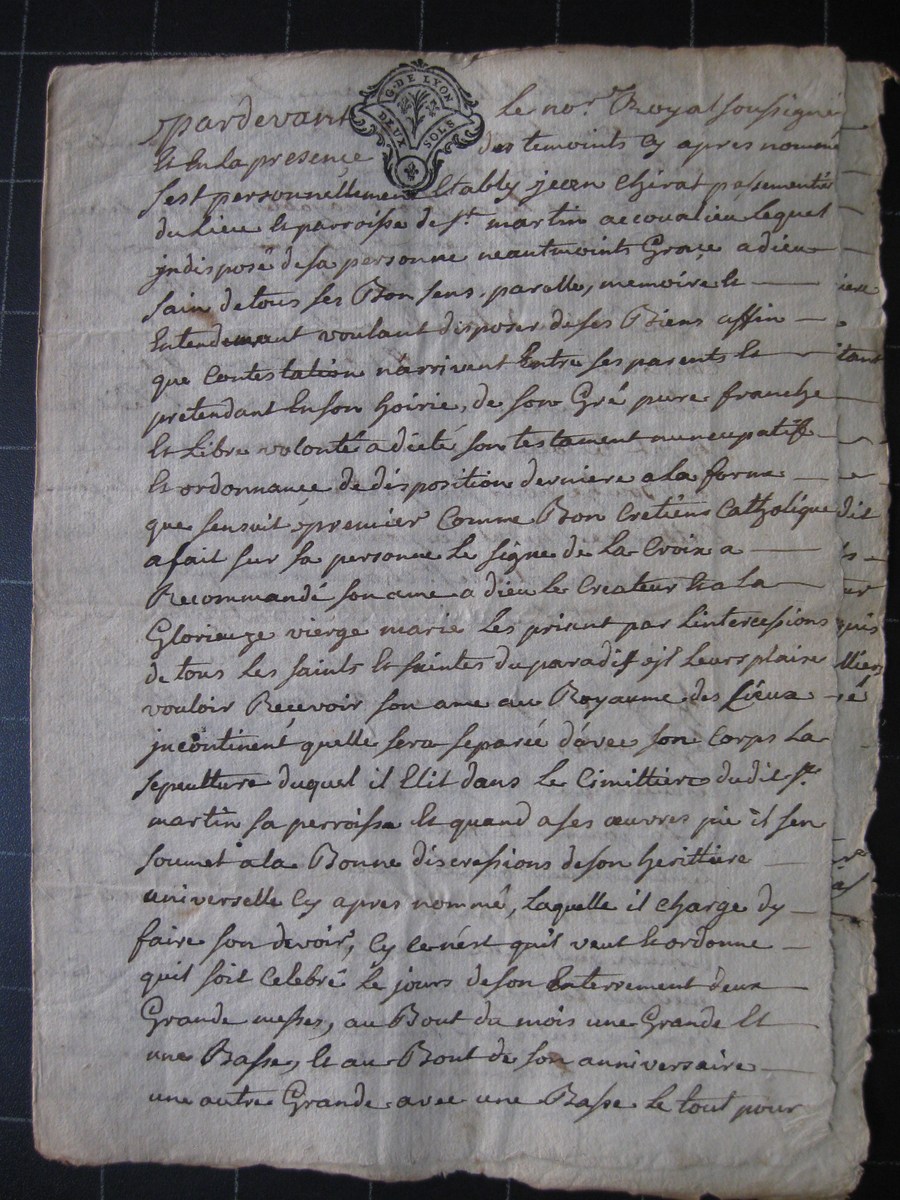 G. DE LYON
DEUX SOLS
pardevant le nore. Royal soussigné
Et En la presence des temoints Cy apres nommé
s'est personnellement Etably jean Chirat passementier
du Lieu Et parroisse de St. martin accoualieu Lequel
jndisposé de sa personne neantmoints Grace a dieu
sain de tous ses Bon sens, parolle, memoire Et
Entendemant voulant disposer de ses Biens affin
que Contestation n'arrivent Entre ses parents Et
pretendant En son hoirie, de son Gré pure franche
Et Libre volonté a dicté son testament nuncupatif
Et ordonnance de disposition derniere a la forme
que sensuit, premier Comme Bon Cretiens Catholique
a fait sur sa personne Le signe de La Croix a
Recommandé son ame a dieu Le Createur Et a La
Glorieuze vierge marie Les priant par L'intercessions
de tous Les saints Et saintes du paradis qu'il Leurs plaise
vouloir Recevoir son ame au Royaume des Cieux
jncontinent quelle sera separée d'avec son Corps La
sepeulture duquel il Elit dans Le Cimittiere dudit St.
martin sa perroisse Et quand a ses œuvres pie il s'en
soumet a la Bonne discressions de son herittiere
universelle Cy apres nommé, Laquelle il charge d'y
faire son devoir, Cy ce n'est qu'il veut Et ordonne
quil soit Celebré Le jours de son Enterrement deux
Grande messes, au Bout du mois une Grande Et
une Basse, Et au Bout de son anniversaire
une autre Grande avec une Basse Le tout pour